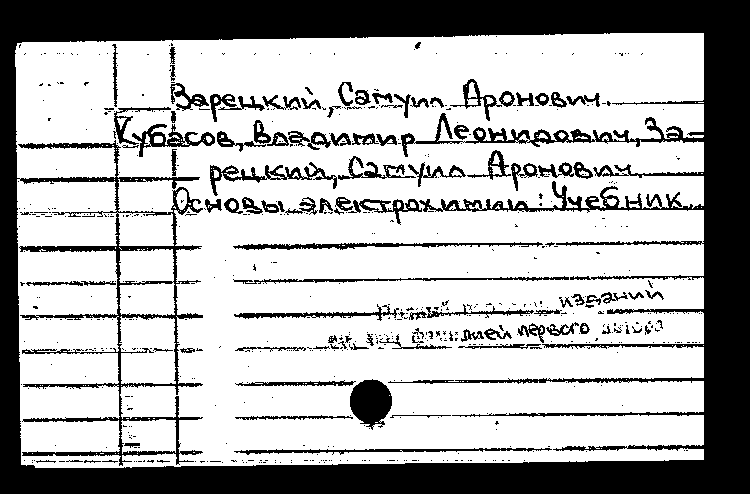 Зарецкий, Самуил Аронович.
Кубасов, Владимир Леонидович, За-
рецкий, Самуил Аронович.
Основы электрохимии: Учебник...
изданий
фамилией первого автора